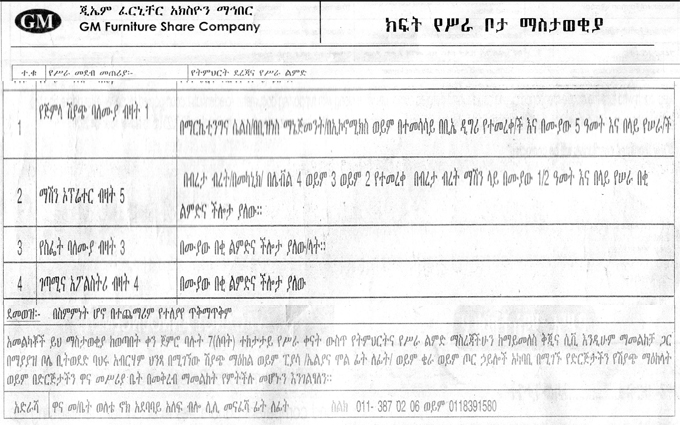 GM
ጂኤም ፈርኒቸር አክስዮን ማኅበር
GM Furniture Share Company
ክፍት የሥራ ቦታ ማስታወቂያ
ተ.ቁ የሥራ መደብ መጠሪያ፡- የትምህርት ደረጃና የሥራ ልምድ
1 የጅምላ ሽያጭ ባለሙያ ብዛት 1 በማርኬቲንግና ሴልስ/በቢዝነስ ማኔጅመንት/በኢኮኖሚክስ ወይም በተመሳሳይ በቢኤ ዲግሪ የተመረቀ/ች እና በሙያው 5 ዓመት እና በላይ የሠራ/ች
2 ማሽን ኦፕሬተር ብዛት 5 በብረታ ብረት/በመካኒክ/ በሌብል 4 ወይም 3 ወይም 2 የተመረቀ በብረታ ብረት ማሽን ላይ በሙያው 1/2 ዓመት እና በላይ የሠራ በቂ
ልምድና ችሎታ ያለው።
3 የስፌት ባለሙያ ብዛት 3 በሙያው በቂ ልምድና ችሎታ ያለው/ላት።
4 ገጣሚና አፖልስትሪ ብዛት 4 በሙያው በቂ ልምድና ችሎታ ያለው
ደመወዝ፡- በስምምነት ሆኖ በተጨማሪም የተለያየ ጥቅማጥቅም
አመልካቾች ይህ ማስታወቂያ ከወጣበት ቀን ጀምሮ ባሉት 7(ሰባት) ተከታታይ የሥራ ቀናት ውስጥ የትምህርትና የሥራ ልምድ ማስረጃችሁን ከማይመለስ ቅጂና ሲቪ እንዲሁም ማመልከቻ ጋር
በማያያዝ ቦሌ ቢትወደድ ባህሩ አብርሃም ህንጻ በሚገኘው ሽያጭ ማዕከል ወይም ፒያሳ /ኤልያና ሞል ፊት ለፊት/ ወይም ቄራ ወይም ጦር ኃይሎች አካባቢ በሚገኙ የድርጅታችን የሽያጭ ማዕከላት
ወይም በድርጅታችን ዋና መሥሪያ ቤት በመቅረብ ማመልከት የምትችሉ መሆኑን እንገልፃለን።
አድራሻ ዋና መ/ቤት ወለቴ ኖክ አደባባይ አለፍ ብሎ ሲሊ መናፈሻ ፊት ለፊት ስልክ 011- 387 02 06 ወይም 0118391580